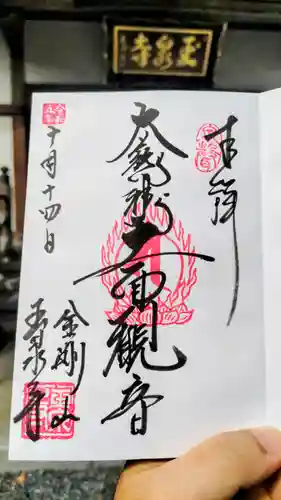 玉泉寺
奉拝
大龍神十一面観音
十月十四日
金剛山
玉泉寺